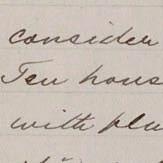 consider
Ten hous
with plu